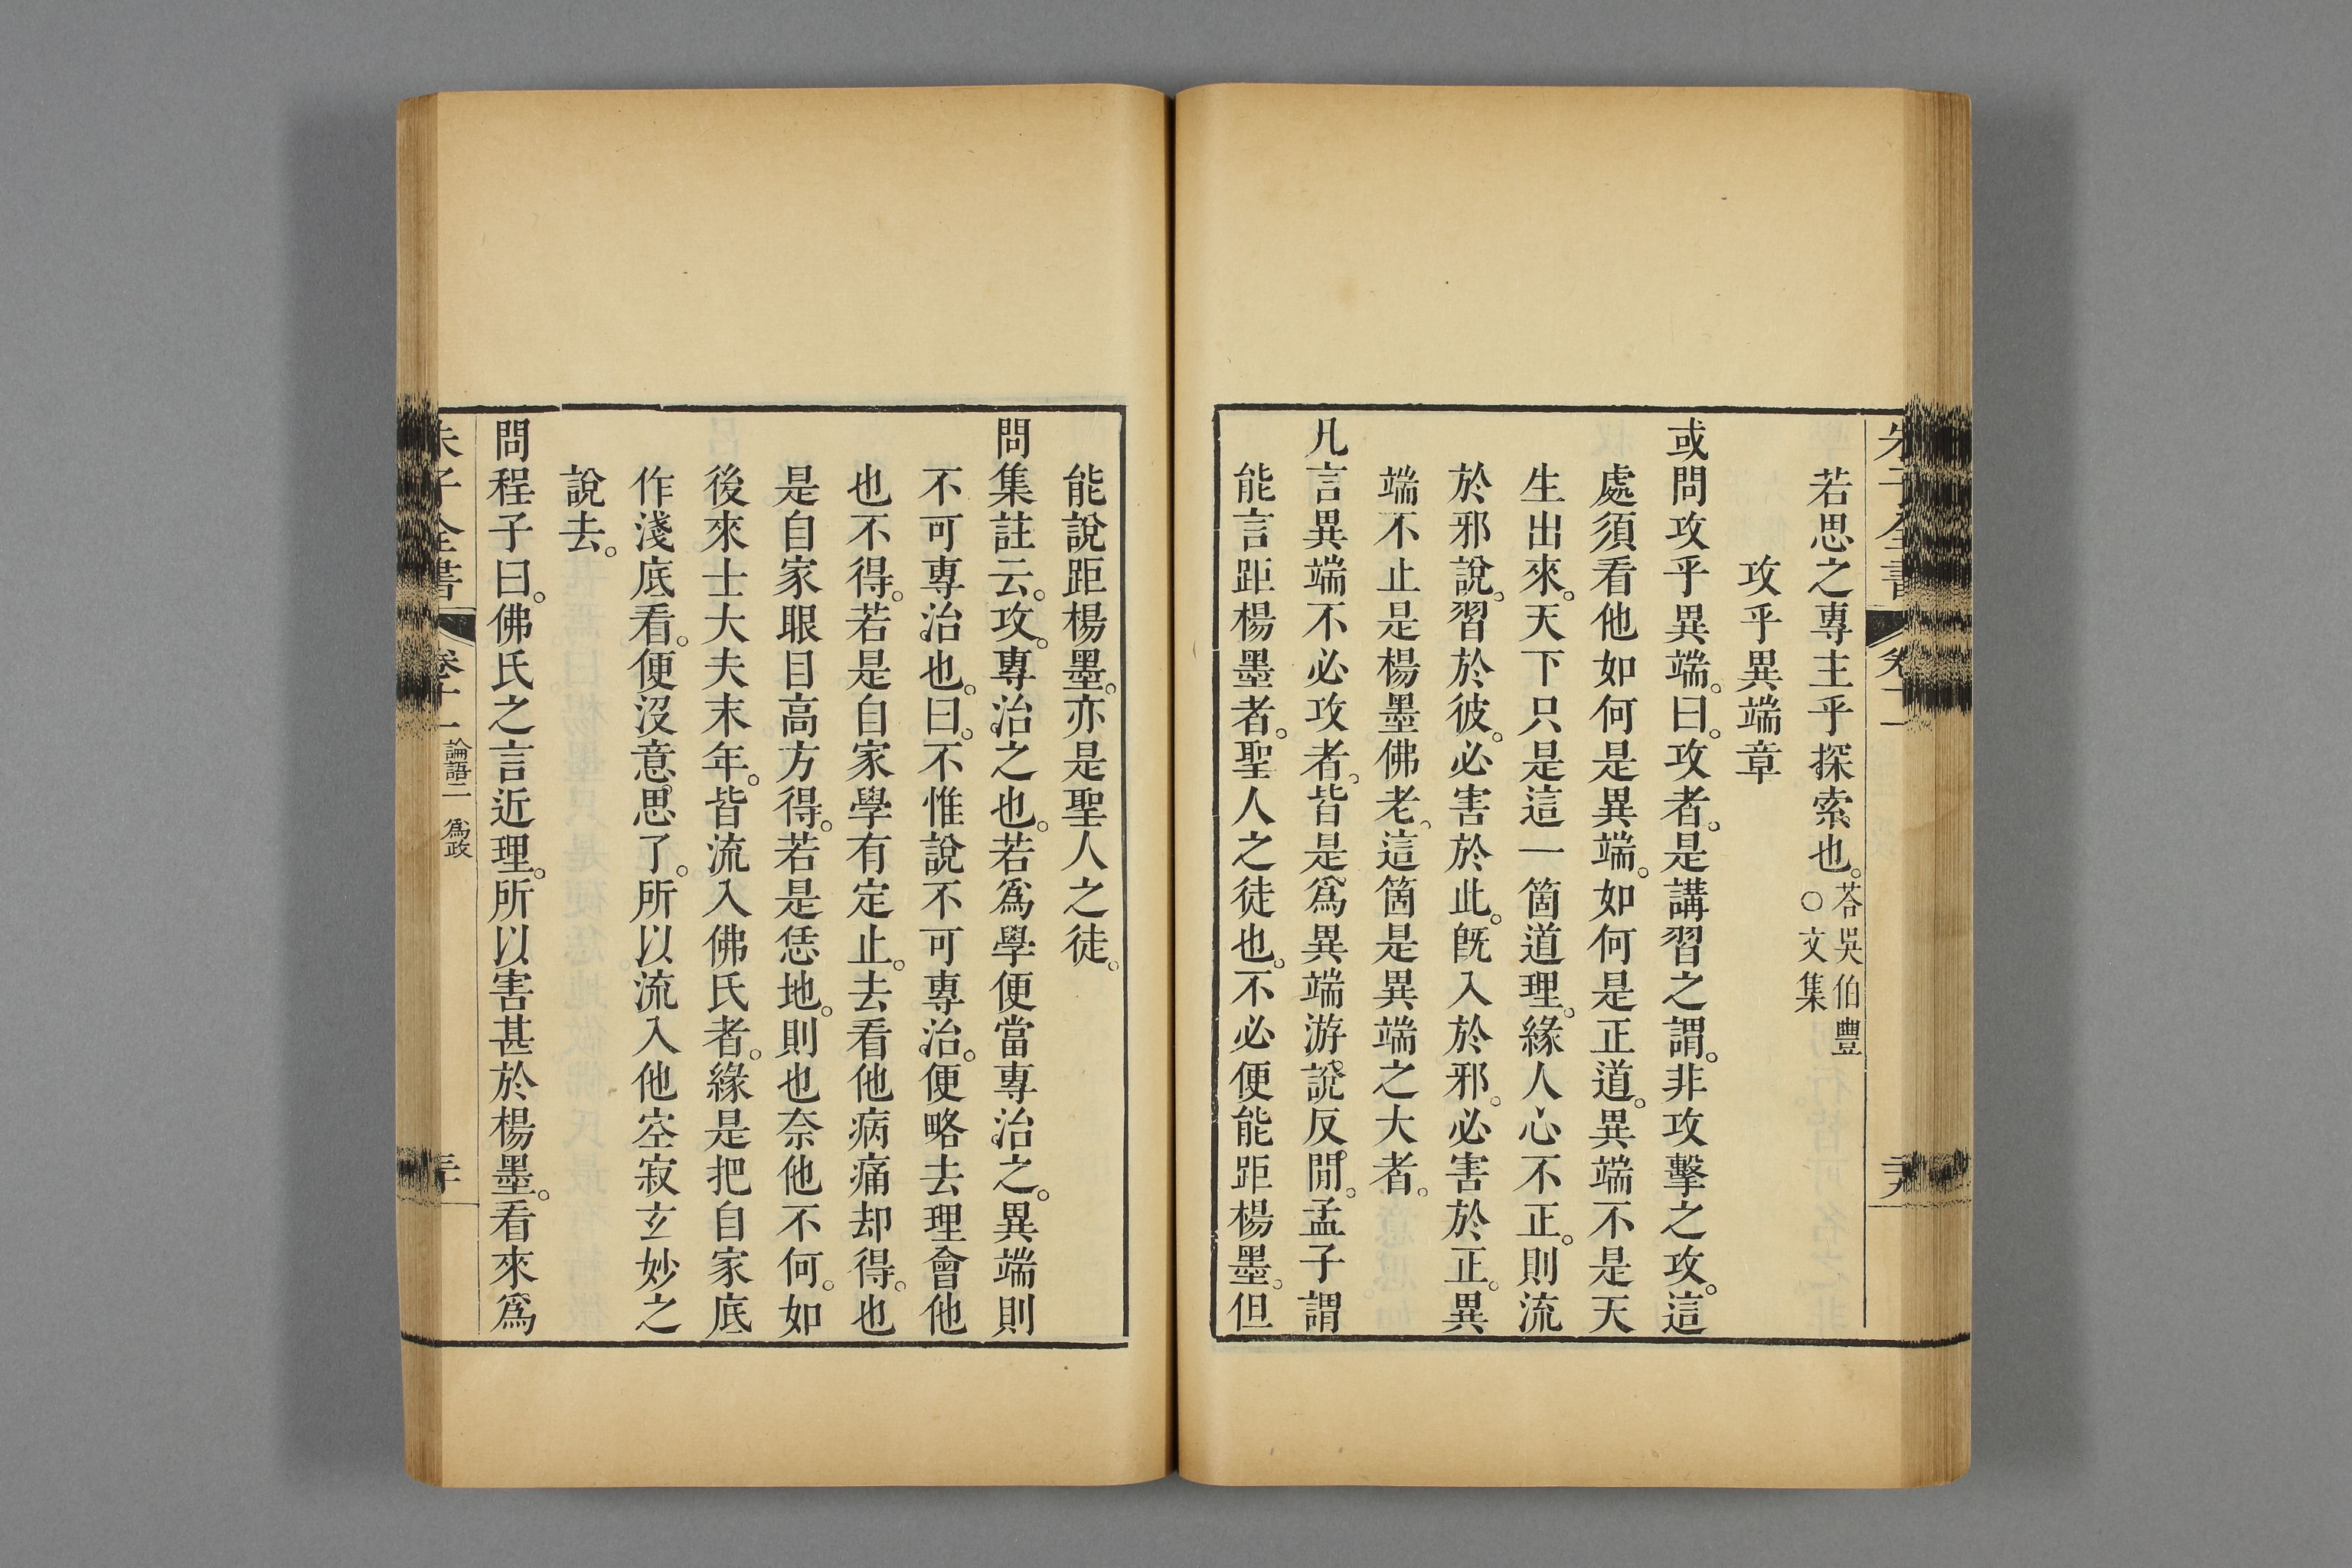 朱子全書 卷十一
若思之專主乎探索也。荅吳伯豐○文集
攻乎異端章
或問攻乎異端。曰。攻者。是講習之謂。非攻擊之攻。這
處須看他如何是異端。如何是正道。異端不是天
生出來。天下只是這一箇道理。緣人心不正。則流
於邪說。習於彼。必害於此。旣入於邪。必害於正。異
端不止是楊墨佛老。這箇是異端之大者。
凡言異端不必攻者。皆是爲異端游說反閒。孟子謂
能言距楊墨者。聖人之徒也。不必便能距楊墨。但
能說距楊墨。亦是聖人之徒。
問集註云。攻。專治之也。若爲學便當專治之。異端則
不可專治也。曰。不惟說不可專治。便略去理會他
也不得。若是自家學有定止。去看他病痛却得。也
是自家眼目高方得。若是恁地。則也奈他不何。如
後來士大夫末年。皆流入佛氏者。緣是把自家底
作淺底看。便沒意思了。所以流入他空寂玄妙之
說去。
問程子曰。佛氏之言近理。所以害甚於楊墨。看來爲
朱子全書 卷十一 論語二 爲政 三十